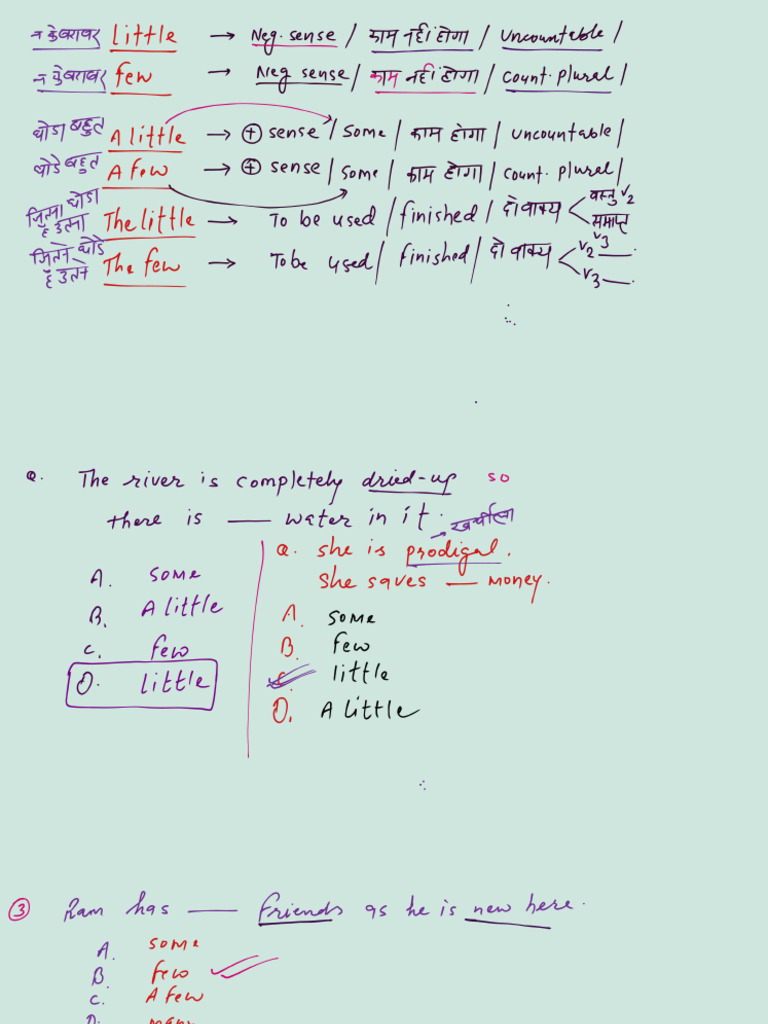 न के बराबर little → Neg. sense / काम नहीं होगा / uncountable /
न के बराबर few → Neg sense / काम नहीं होगा / count. plural /
थोडा बहुत A little → + sense / some / काम होगा / uncountable /
थोडे बहुत A few → + sense / some / काम होगा / count. plural /
जितना थोडा है उतना The little → To be used / finished / दो वाक्य < वस्तु V2 समाप्त V3
जितने थोडे है उतने The few → To be used / finished / दो वाक्य < V2 V3
Q. The river is completely dried-up so
there is — water in it.
A. some
B. A little
C. few
D. little
खर्चीला
Q. she is prodigal.
She saves — money.
A. some
B. few
C. little
D. A little
3 Ram has — friends as he is new here.
A. some
B. few
C. A few
D. many